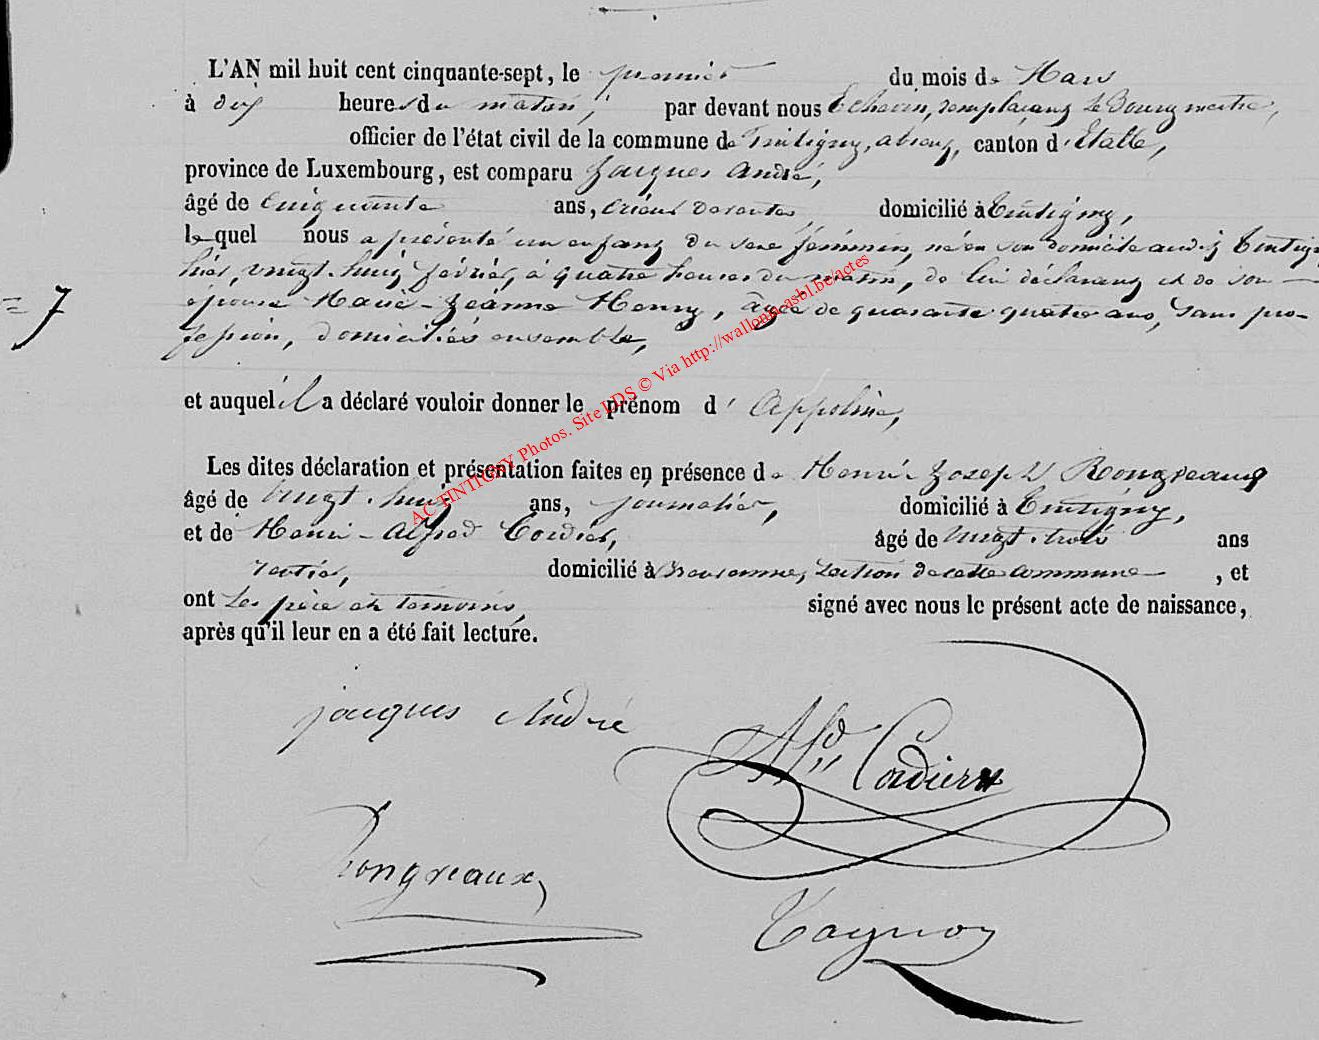 L'AN mil huit cent cinquante-sept, le premier du mois de Mars
à dix heures du matin, par devant nous Echevin, remplaçant le Bourgmestre,
officier de l'état civil de la commune de Tintigny, absent, canton d'Etalle,
province de Luxembourg, est comparu Jacques André,
âgé de Cinquante ans, domicilié à Tintigny,
lequel nous a présenté un enfant du sexe féminin, né en son domicile audit Tintigny
hier, vingt-huit février, à quatre heures du matin, de lui déclarant et de son
= 7 épouse Marie-Jeanne Henry, âgée de quarante quatre ans, sans pro-
fession, domiciliés ensemble,
et auquel il a déclaré vouloir donner le prénom d' Appoline,
Les dites déclaration et présentation faites en présence de Henri-Joseph Rongveaux
âgé de vingt-huit ans, journalier, domicilié à Tintigny,
et de Henri-Alfred Cordier, âgé de vingt-trois ans
rentier, domicilié à section de cette commune, et
ont les père et témoins, signé avec nous le présent acte de naissance,
après qu'il leur en a été fait lecture.
jacques André
Alf<sup>d</sup> Cordier
Rongveaux
ACTINTIGNY Photos. Site LDS © Via http://wallonia-asbl.be/actes